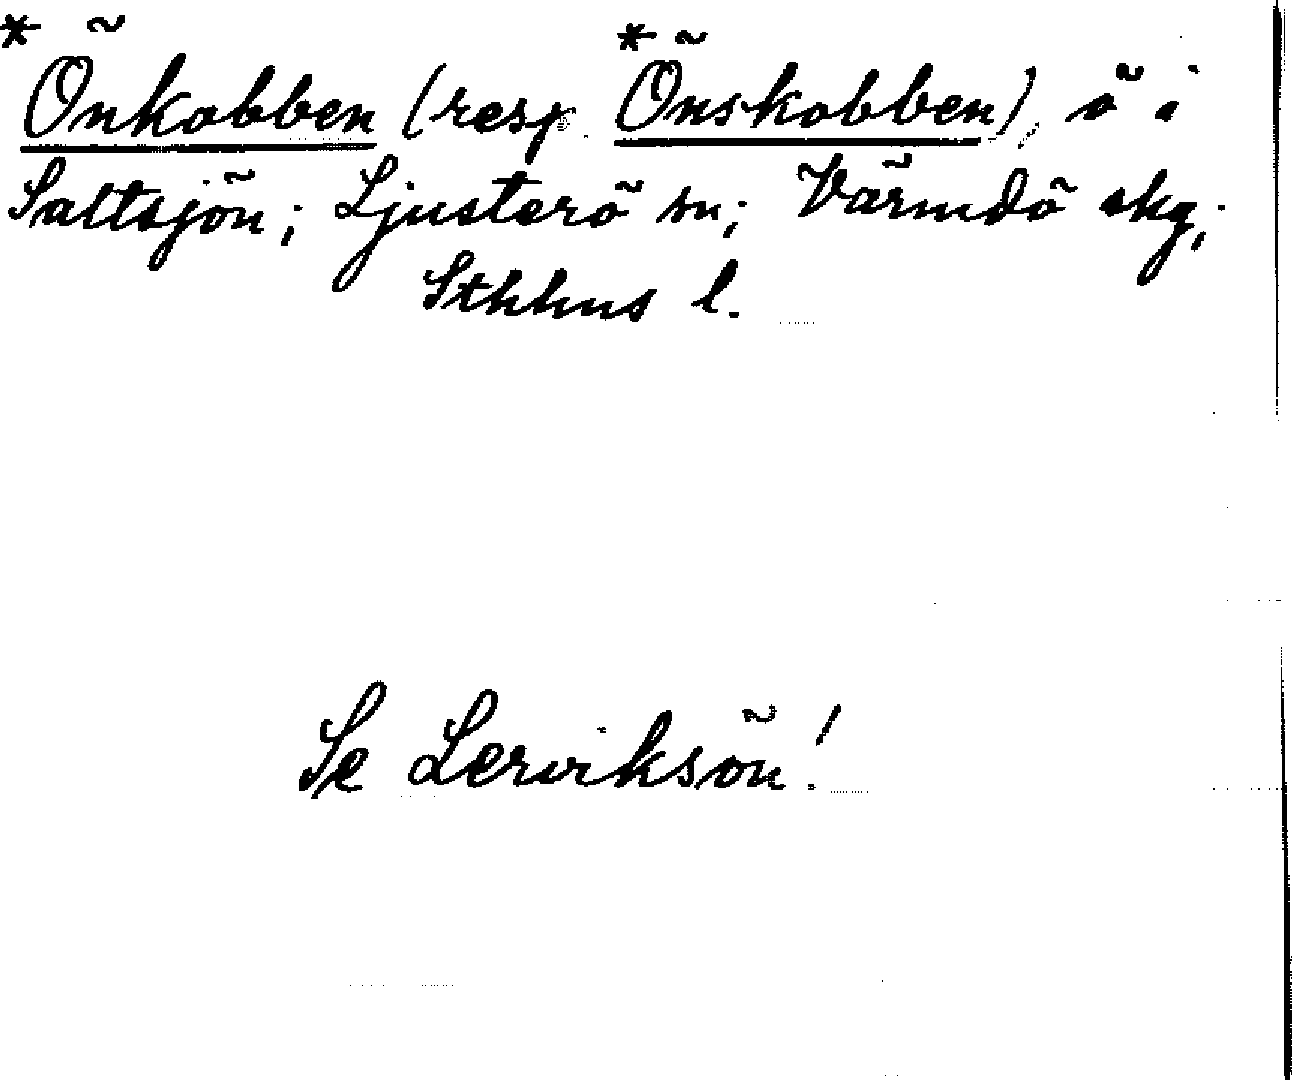 *Önkobben (resp. *Önskobben), ö i
Saltsjön; Ljusterö sn; Värmdö skg;
Sthhus l.
Se Lerviksön!